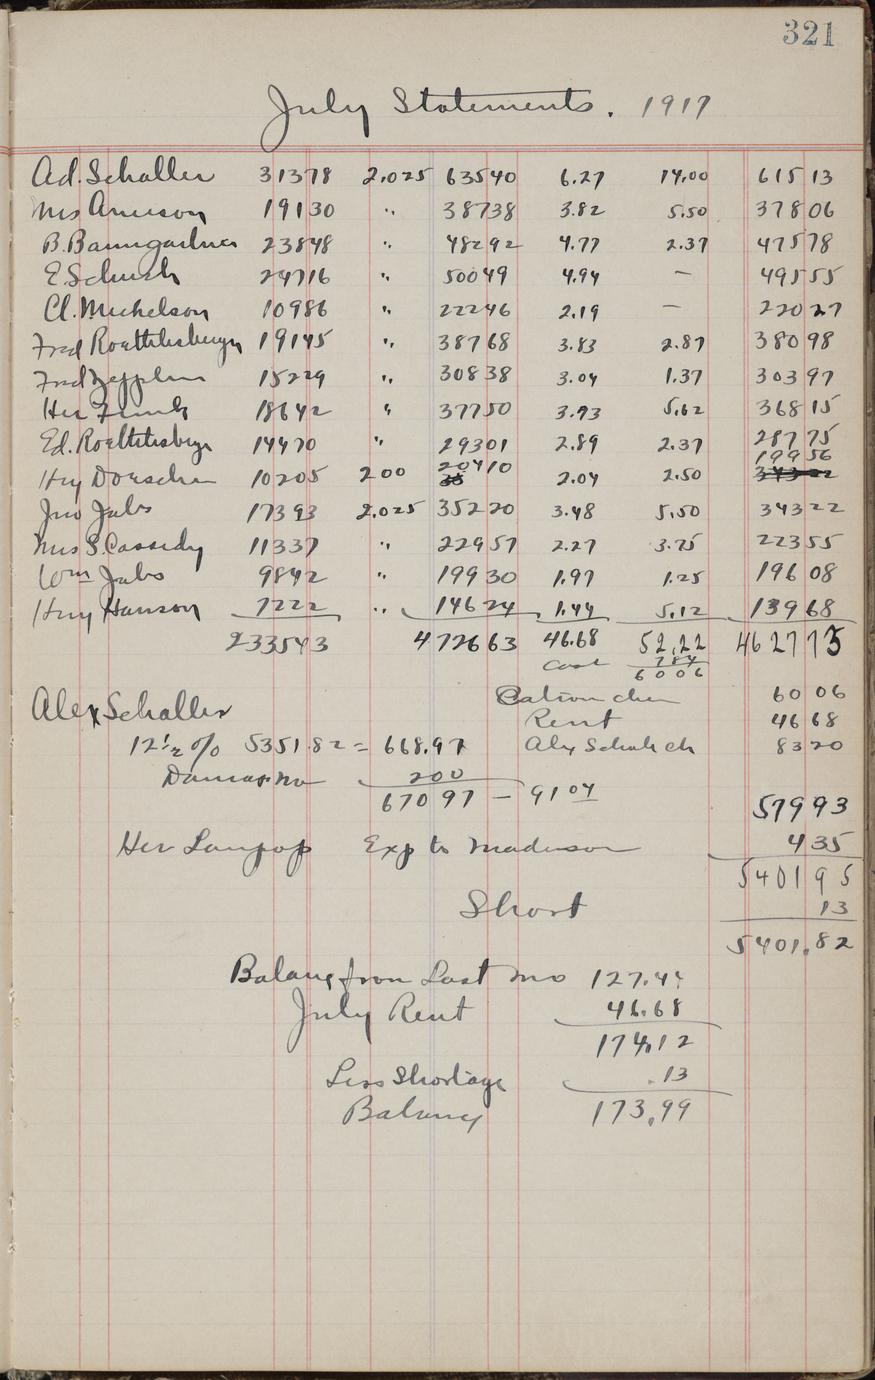 321
July Statements. 1917
Ad. Schaller 31378 2.025 63540 6.27 14.00 615 13
Mrs Arneson 19130 " 38738 3.82 5.50 378 06
B. Baumgartner 23848 " 48292 4.77 2.37 475 78
E. Schuch 24716 " 50049 4.94 — 495 55
Cl. Michelson 10986 " 22246 2.19 — 220 27
Fred Roethlisberger 19145 " 38768 3.83 2.87 380 98
Fred Zepplin 15229 " 30838 3.04 1.37 303 97
Her Funk 18642 " 37750 3.73 5.62 368 15
Ed. Roethlisberger 14470 " 29301 2.89 2.37 287 75
Hry 10205 200 20410 2.04 2.50 199 56
Jno Jabs 17393 2.025 35220 3.48 5.50 343 22
Mrs S. Cassidy 11337 " 22957 2.27 3.75 223 55
Wm Jabs 9842 " 19930 1.97 1.25 196 08
Hry Hanson 7222 " 14624 1.44 5.12 139 68
233543 472663 46.68 52,22 4627 73
Cost 784
6006
Alex Schaller 60 06
Rent 46 68
12 1/2 % 5351.82 = 668.97 Alex Schaller ch 83 20
200
670 97 — 91 04
579 93
Her Exp to Madison 4 35
5401 95
Short 13
5401.82
Balance from Last Mo 127.44
July Rent 46.68
174.12
Less Shortage .13
Balance 173.99